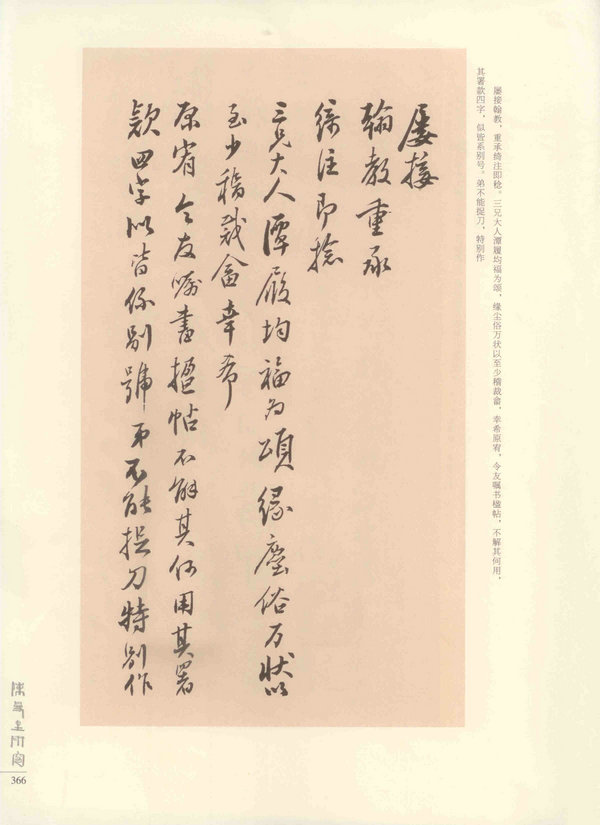 屡接翰教，重承绮注即稔。三兄大人潭履均福为颂，缘尘俗万状以至少稽裁畲，幸希原宥，令友嘱书楹帖，不解其何用，
其署款四字，似皆系别号。弟不能捉刀，特别作
屢接
翰教重承
綺注即稔
三兄大人潭履均福为頌緣塵俗万状以
至少稽裁畲幸希
原宥令友嘱書楹帖不解其何用其署
款四字似皆係别號弟不能捉刀特别作
366